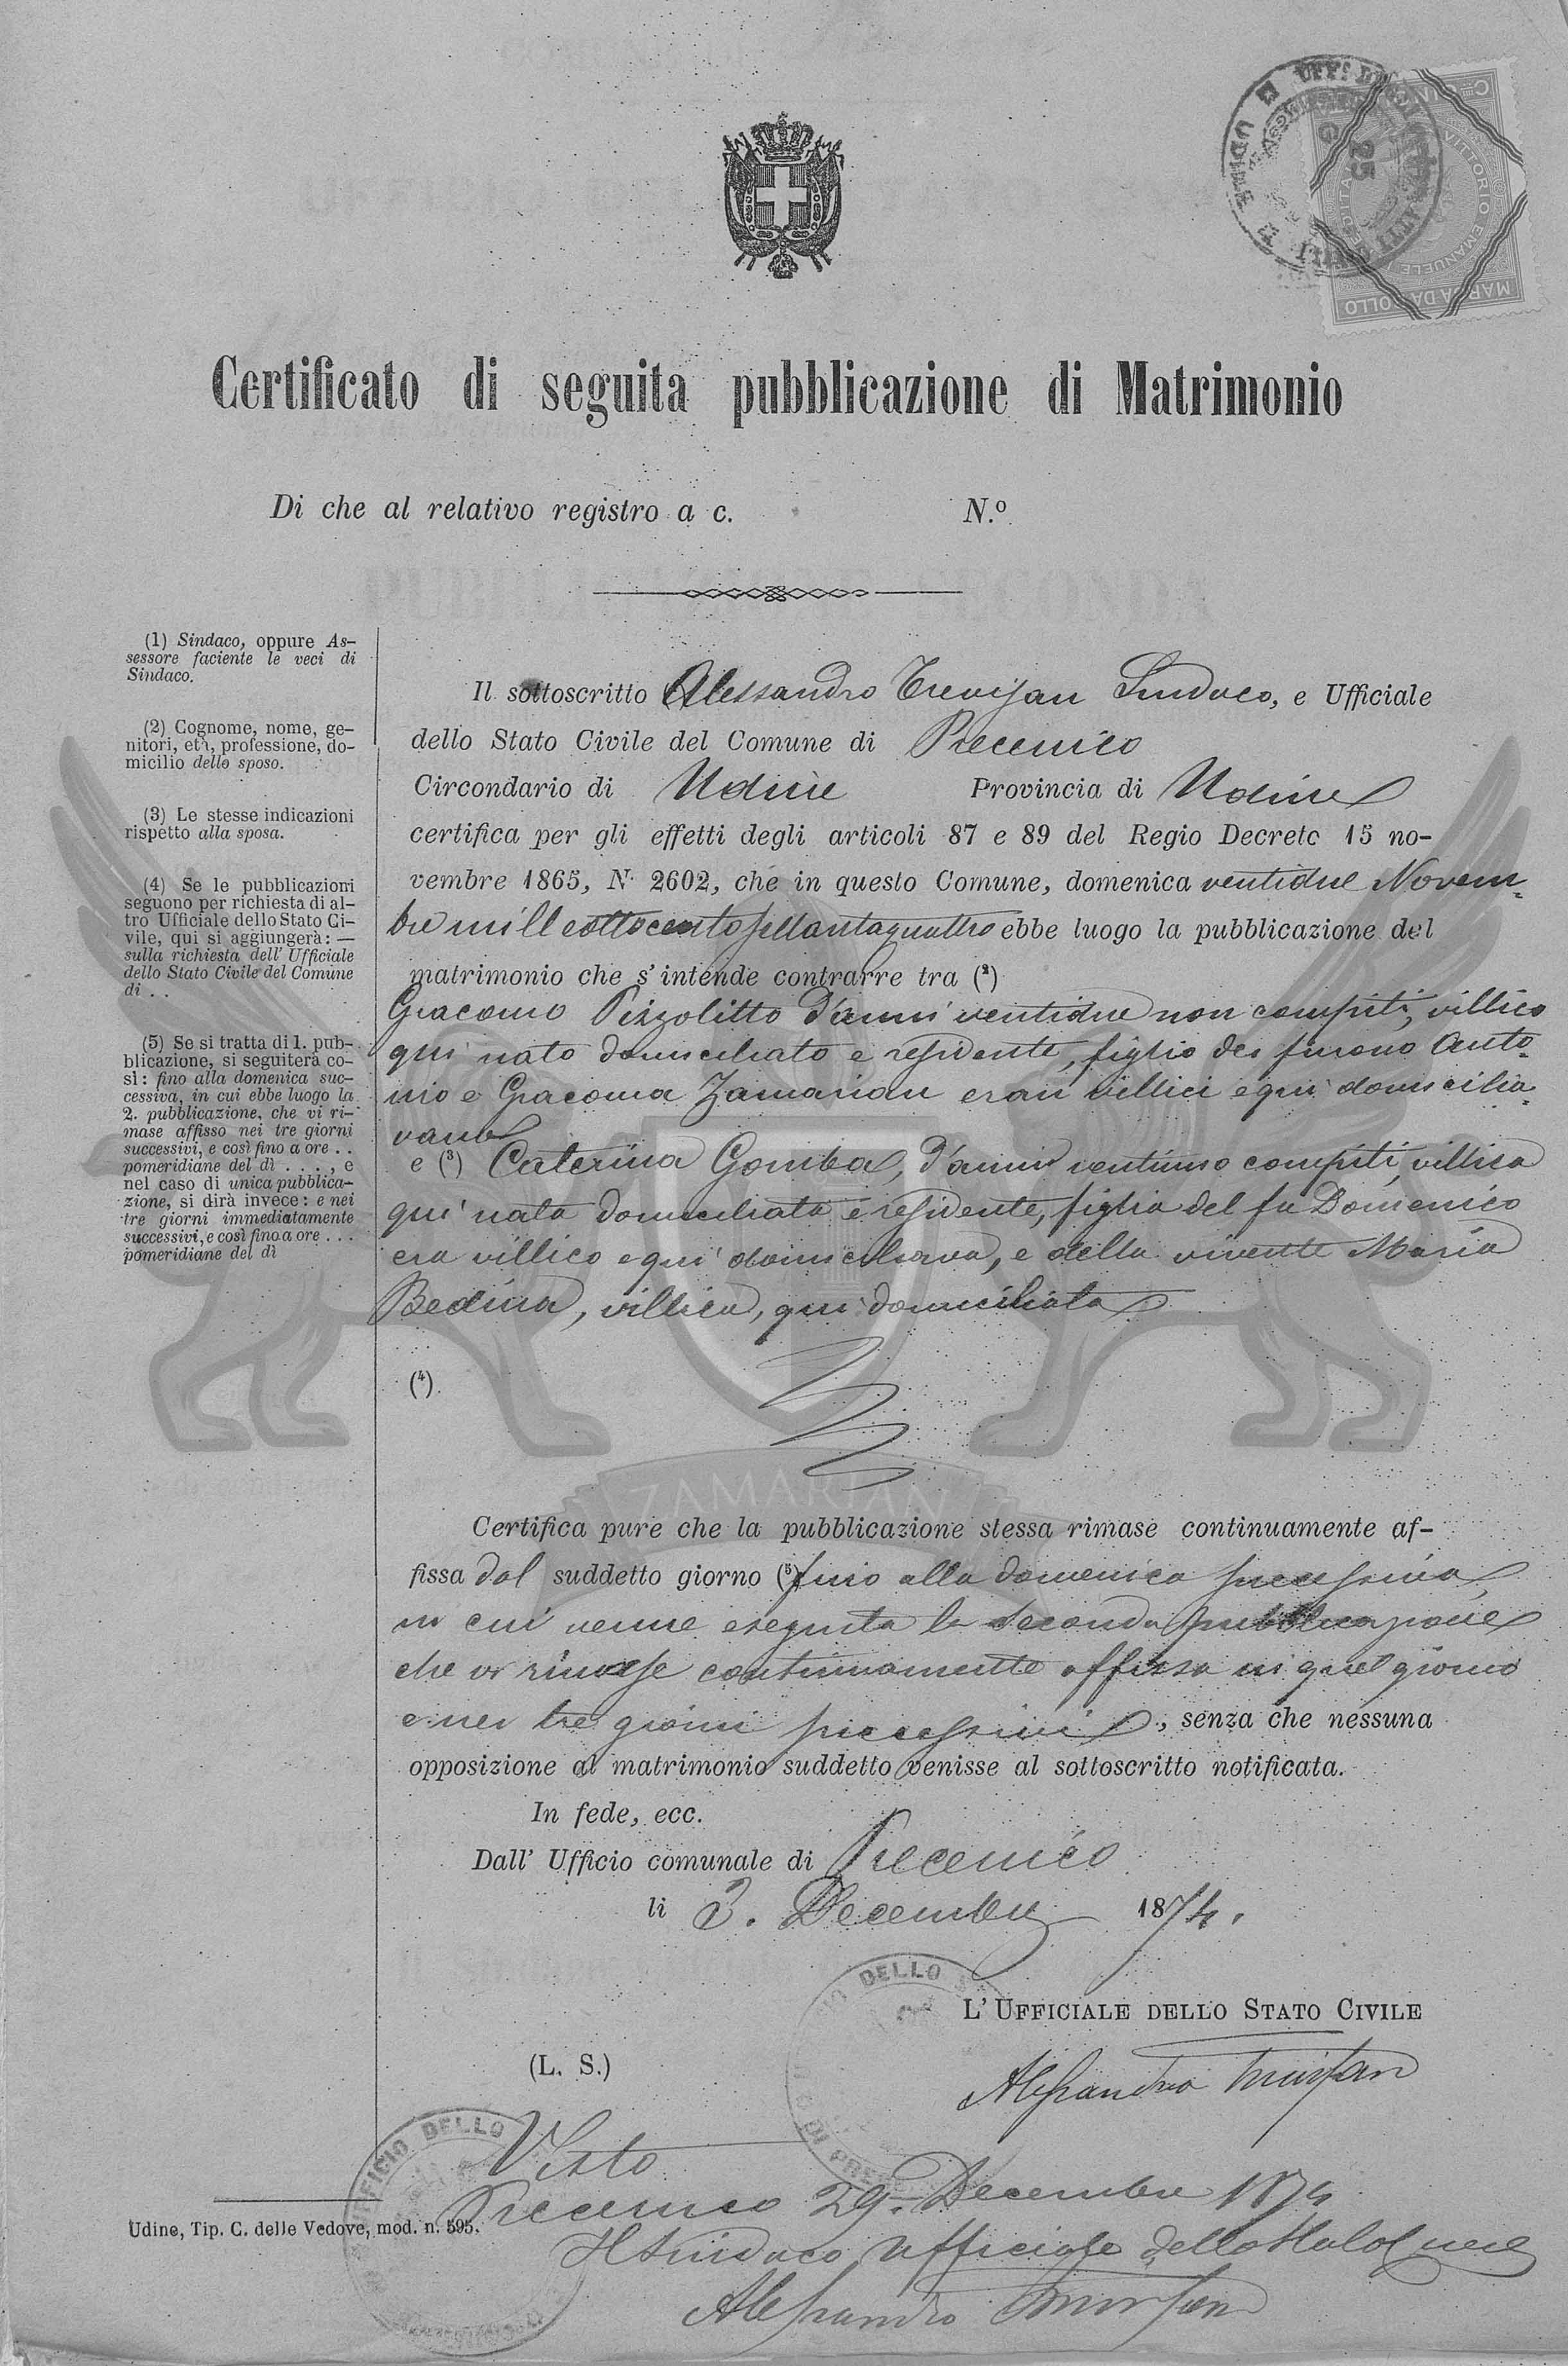 UFF. DEGLI ATTI CIVILI
UDINE
25
MARCA DA BOLLO
VITTORIO EMANUELE
Certificato di seguita pubblicazione di Matrimonio
Di che al relativo registro a c. N.º
(1) Sindaco, oppure As-
sessore faciente le veci di
Sindaco.
(2) Cognome, nome, ge-
nitori, età, professione, do-
micilio dello sposo.
(3) Le stesse indicazioni
rispetto alla sposa.
(4) Se le pubblicazioni
seguono per richiesta di al-
tro Ufficiale dello Stato Ci-
vile, qui si aggiungerà: —
sulla richiesta dell' Ufficiale
dello Stato Civile del Comune
di . .
(5) Se si tratta di 1. pub-
blicazione, si seguiterà co-
sì: fino alla domenica suc-
cessiva, in cui ebbe luogo la
2. pubblicazione, che vi ri-
mase affisso nei tre giorni
successivi, e così fino a ore . .
pomeridiane del dì . . . . , e
nel caso di unica pubblica-
zione, si dirà invece: e nei
tre giorni immediatamente
successivi, e così fino a ore . . .
pomeridiane del dì
Il sottoscritto Alessandro Trevisan Sindaco, e Ufficiale
dello Stato Civile del Comune di Precenico
Circondario di Udine Provincia di Udine
certifica per gli effetti degli articoli 87 e 89 del Regio Decreto 15 no-
vembre 1865, N. 2602, che in questo Comune, domenica ventidue Novem-
bre mille ottocento settantaquattro ebbe luogo la pubblicazione del
matrimonio che s' intende contrarre tra (2)
Giacomo Pizzolitto d'anni ventidue non compiti, villico
qui nato domiciliato e residente, figlio dei furono Anto-
nio e Giacoma Zamarian eran villici e qui domicilia-
vano
e (3) Caterina Gomba, d'anni ventiuno compiti, villica
qui nata domiciliata e residente, figlia del fu Domenico
era villico e qui domiciliava, e della vivente Maria
Bedina, villica, qui domiciliata
(4)
ZAMARIAN
Certifica pure che la pubblicazione stessa rimase continuamente af-
fissa dal suddetto giorno (5) fino alla domenica successiva,
in cui venne eseguita la seconda pubblicazione
che vi rimase continuamente affissa in quel giorno
e nei tre giorni successivi, senza che nessuna
opposizione al matrimonio suddetto venisse al sottoscritto notificata.
In fede, ecc.
Dall' Ufficio comunale di Precenico
li 3. Decembre 1874.
DELLO
DI PRE
L' UFFICIALE DELLO STATO CIVILE
(L. S.)
Alessandro Trevisan
UFFICIO DELLO
Visto
Precenico 29. Decembre 1874
Il Sindaco Ufficiale dello Stato Civile
Alessandro Trevisan
Udine, Tip. C. delle Vedove, mod. n. 595.